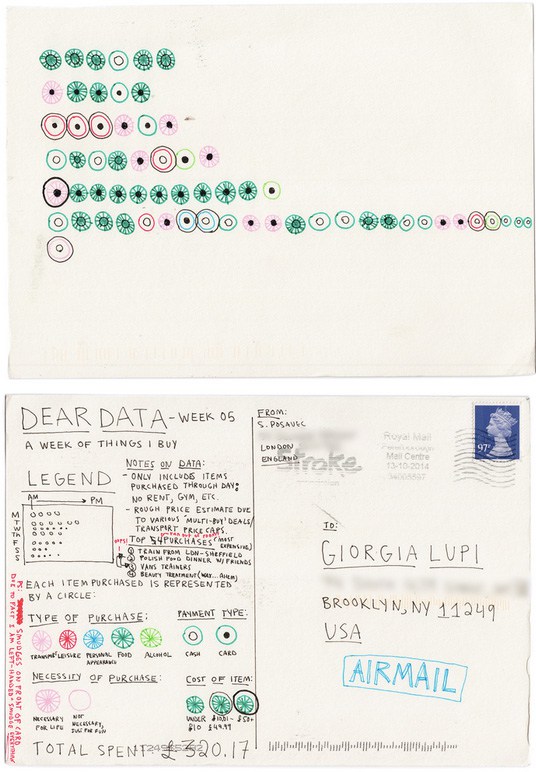 DEAR DATA - WEEK 05
A WEEK OF THINGS I BUY
LEGEND
AM
PM
M
T
W
Th
F
S
S
NOTES ON DATA:
- ONLY INCLUDE ITEMS
PURCHASED THROUGH DAY:
NO RENT, GYM, ETC.
- ROUGH PRICE ESTIMATE DUE
TO VARIOUS 'MULTI-BUY' DEALS/
TRANSPORT PRICE CAPS.
TOP 4 PURCHASES (MOST
EXPENSIVE)
OOPS!
① TRAIN FROM LDN-SHEFFIELD
② POLISH FOOD DINNER W/FRIENDS
③ VANS TRAINERS
④ BEAUTY TREATMENT (WAX...AHEM)
EACH ITEM PURCHASED IS REPRESENTED
BY A CIRCLE:
TYPE OF PURCHASE:
TRANSPORT
LEISURE
PERSONAL
APPEARANCE
FOOD
ALCOHOL
PAYMENT TYPE:
CASH
CARD
NECESSITY OF PURCHASE:
NECESSARY
FOR LIFE
NOT
NECESSARY,
JUST FOR FUN
COST OF ITEM:
UNDER
£10
£10.01-
£49.99
£50+
TOTAL SPENT: £320.17
PS: SMUDGES ON FRONT OF CARD
DUE TO FACT I AM LEFT-HANDED + SMUDGE EVERYTHING
FROM:
S. POSAVEC
LONDON
ENGLAND
Royal Mail
Mail Centre
13-10-2014
97P
TO:
GIORGIA LUPI
BROOKLYN, NY 11249
USA
AIRMAIL